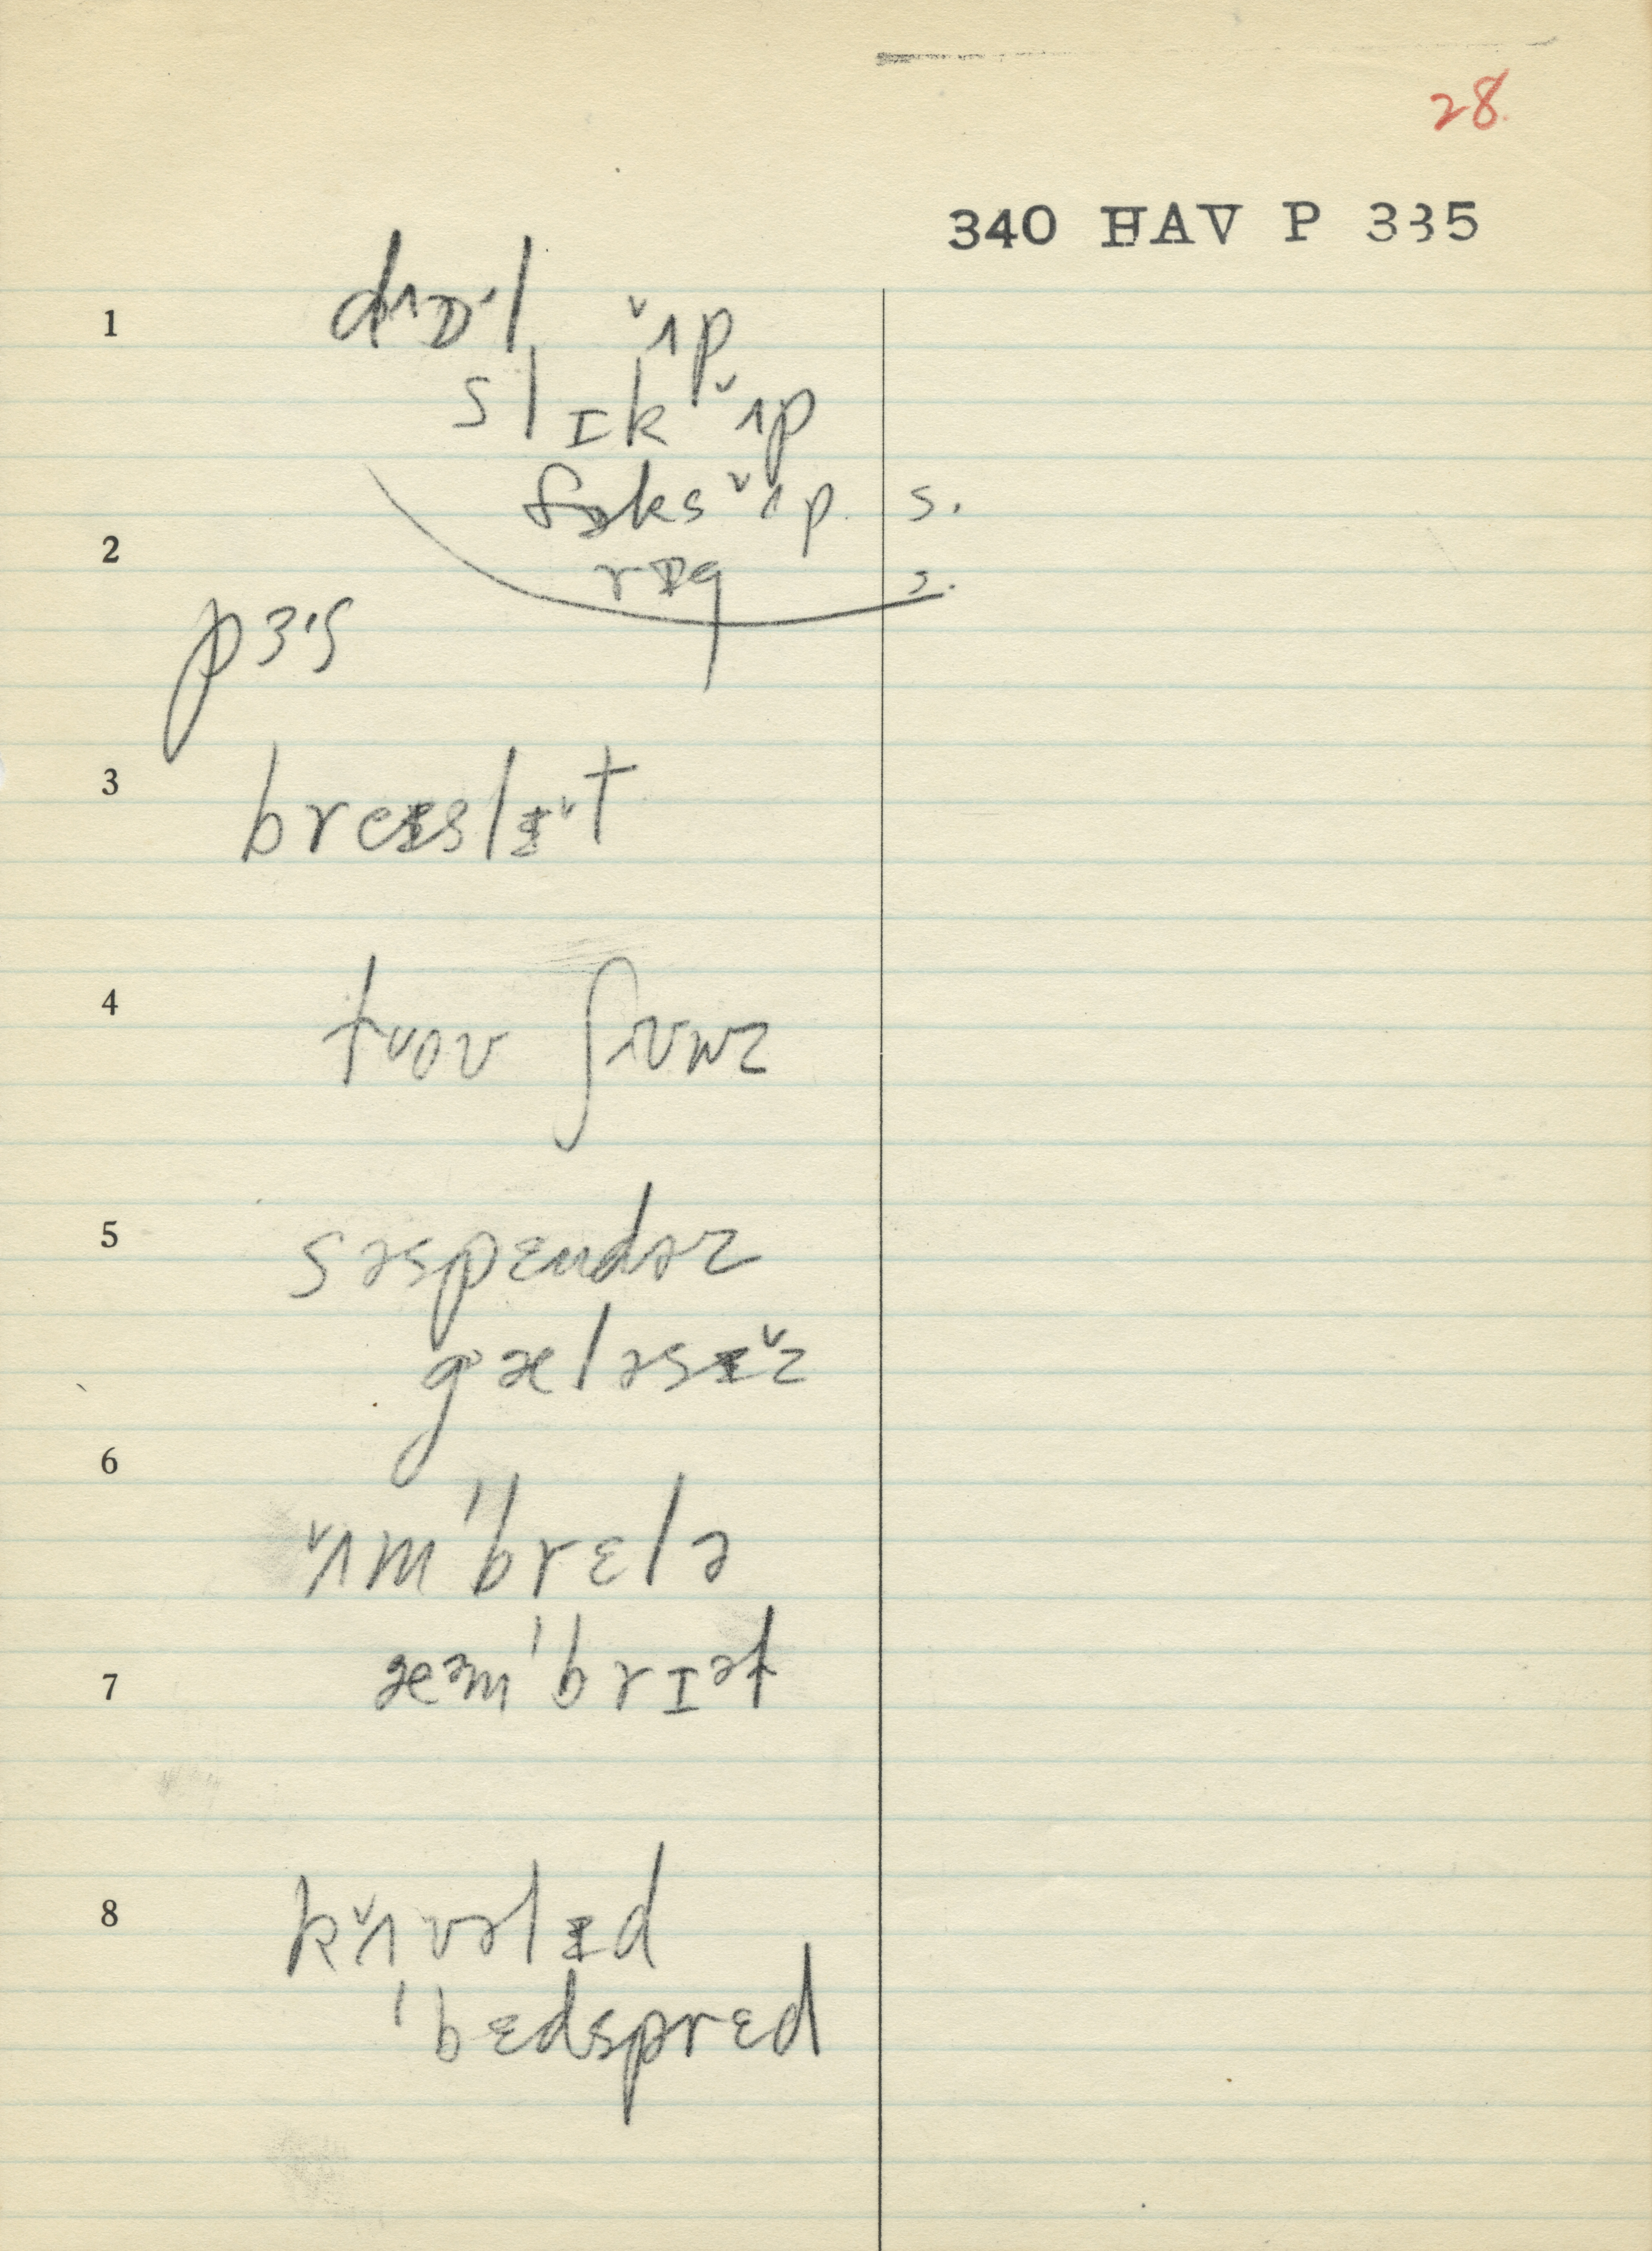 28.
340 HAV P 335
1 dɒ'l ˇʌp
slɪk ˇʌp
fɒks ˇʌp s.
2 rɪg s.
pɜ's
3 breɪslɪˇt
4 tˇʊov ʃʌvnz
5 səspɛndəz
gæləsɪˇz
6
ˇʌm'brɛlə
7 æəm'brɪət
8 kˇʌvəlɪd
'bɛdsprɛd